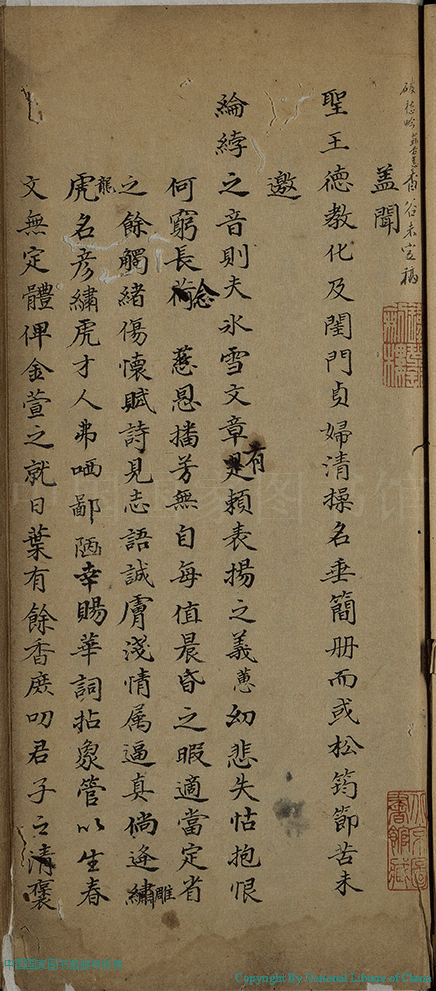 蓋聞
聖王德教化及閨門貞婦清操名垂簡册而或松筠節苦未
邀
綸綍之音則夫氷雪文章有賴表揚之義蕙幼悲失怙抱恨
何窮長念慈恩播芳無自每值晨昏之暇適當定省
之餘觸緒傷懷賦詩見志語誠膚淺情屬逼真倘逢雕
龍名彦繡虎才人弗哂鄙陋幸賜華詞拈象管以生春
文無定體俾金萱之就日葉有餘香庶叨君子之清褒
Copyright By National Library of China